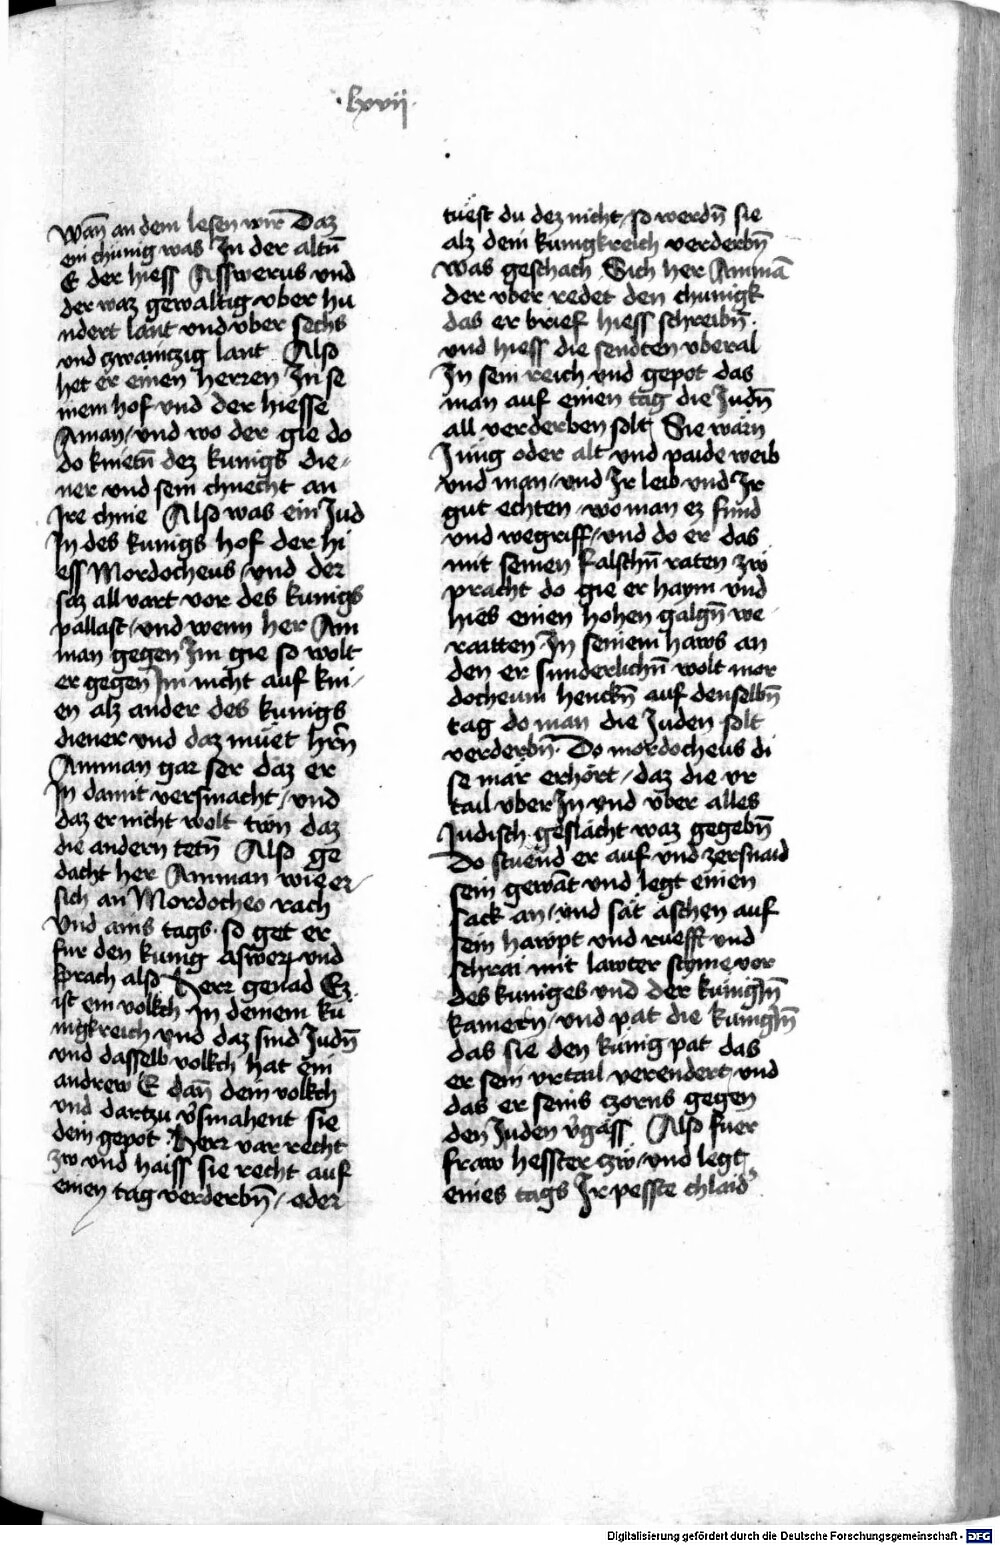 ·lxvij·
wan̄ an dem lesen wir Daz
ein chünig was In der altn̄
E der hiess Asswerus vnd
der waz gewaltig vber hu
ndert lant vnd vber sechs
vnd zwainczig lant Also
het er einen herren In se
inem hof vnd der hiesse
Aman / vnd wo der gie do
do knietn̄ dez kunigs die⸗
ner vnd sein chnecht an
Ire chnie Also was ein Jud
In des kunigs hof der hi
ess Mordocheus / vnd der
saz all vart vor des kunigs
pallast / vnd wenn her Am
man gegen Im gie so wolt
er gegen Im nicht auf kni⸗
en alz ander des kunigs
diener vnd daz müet hrn̄
Amman gar ser daz er
In damit versmacht / vnd
daz er nicht wolt twn daz
die andern tetn̄ Also ge
dacht her Amman wie er
sich an Mordocheo rach
Vnd ains tags · so get er
fur den kunig Aswerz vnd
sprach also Herr genad Ez
ist ein volkch In deinem ku
nigkreich vnd daz sind Judn̄
vnd dasselb volkch hat ein
andrew E dan̄ dein volkch
vnd dartzu v̄smahent sie
dein gepot · Herr var recht
zw vnd haiss sie recht auf
einen tag verderbn̄ / oder
tuest du dez nicht / so werdn̄ sie
alz dein kunigkreich verderbn̄
Was geschach Sich her Ammā
der vber redet den chunigk
das er brief hiess schreibn̄ ·
vnd hiess die sendten vberal
In sein reich vnd gepot das
man auf einen tag die Judn̄
all verderben solt Sie wärn
Jung oder alt vnd paide weib
vnd man / vnd Ir leib vnd Ir
gut echten / wo man ez fund
vnd wegriff / vnd do er das
mit seinen falschn̄ raten zw
pracht do gie er haym vnd
hies einen hohen galgn̄ we
raitten In seinem haws an
den er sunderlichn̄ wolt mor
docheum henckn̄ auf denselbn̄
tag do man die Juden solt
verderbn̄ · Do mordocheus di
se mär erhört / daz die vr
tail vber In vnd vber alles
Judisch geslächt waz gegebn̄
Do stuend er auf vnd zersnaid
sein gewāt vnd legt einen
sack an / vnd sät aschen auf
sein hawpt vnd ruefft vnd
schrai mit lawter styme vor
des kuniges vnd der kunigīn
kamern / vnd pat die kunigīn
das sie den künig pat das
er sein vrtail verendert / vnd
das er seins czorns gegen
den Juden v̄gäss Also fuer
fraw hesster zw / vnd legt
eines tags Ir pesste chlaid
Digitalisierung gefördert durch die Deutsche Forschungsgemeinschaft - DFG